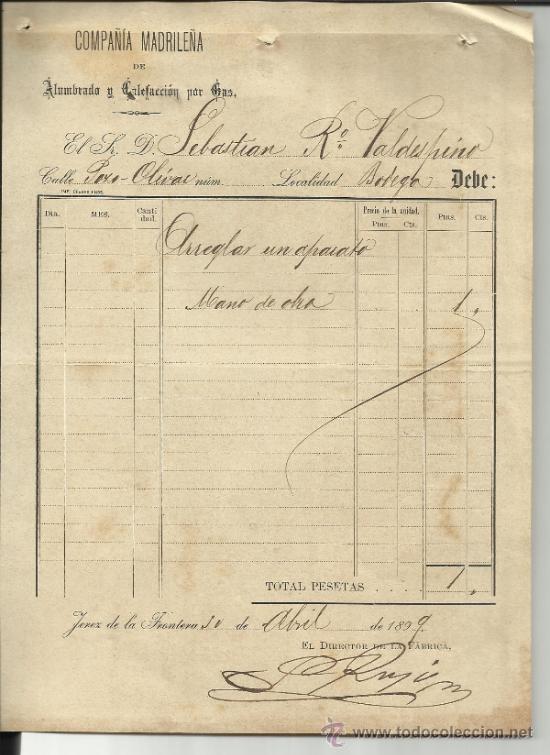 COMPAÑÍA MADRILEÑA
DE
Alumbrado y Calefacción por Gas.
El Sr. D. Sebastian Rº Valdespino
Calle Pozo-Olivar núm. Localidad Bodega Debe:
Dia. MES. Canti dad. Precio de la unidad. Ptas. Cts. Ptas. Cts.
Arreglar un aparato
Mano de obra 1,
TOTAL PESETAS . . . . 1,
Jerez de la Frontera 30 de Abril de 1899.
EL DIRECTOR DE LA FÁBRICA,
todocoleccion
www.todocoleccion.net